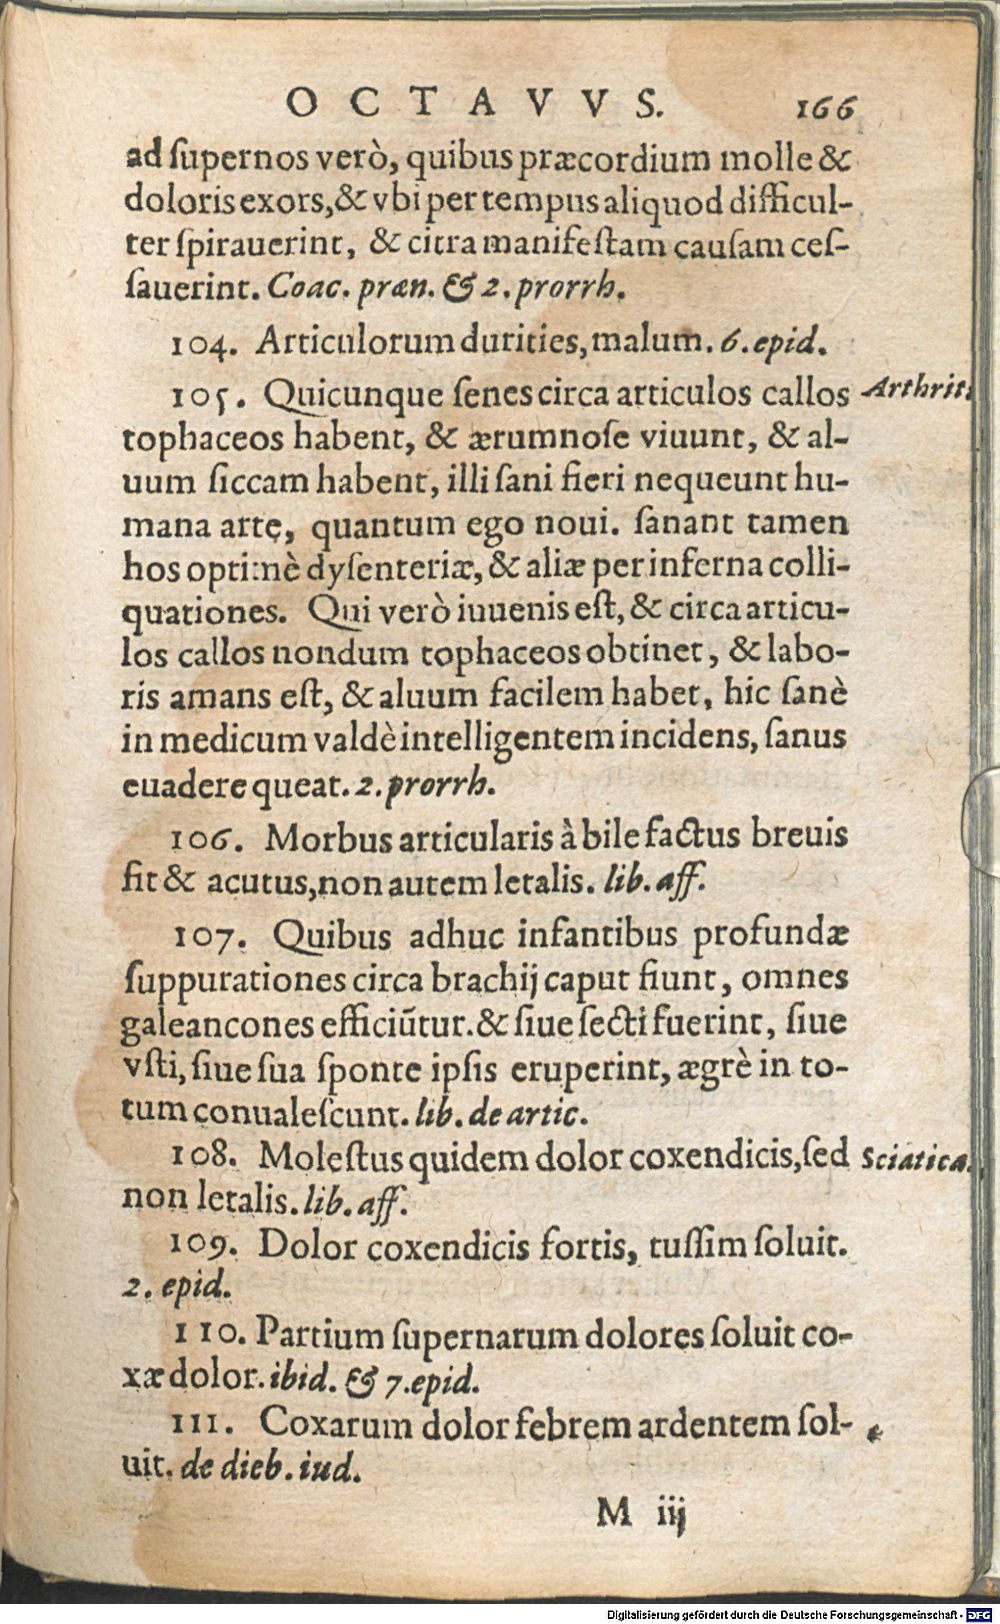 OCTAVVS. 166
ad ſupernos verò, quibus præcordium molle &
doloris exors, & vbi per tempus aliquod difficul-
ter ſpirauerint, & citra manifeſtam cauſam ceſ-
ſauerint. Coac. præn. & 2. prorrh.
104. Articulorum durities, malum. 6. epid.
105. Quicunque ſenes circa articulos callos
Arthrit
tophaceos habent, & ærumnoſe viuunt, & al-
uum ſiccam habent, illi ſani fieri nequeunt hu-
mana arte, quantum ego noui. ſanant tamen
hos optimè dyſenteriæ, & aliæ per inferna colli-
quationes. Qui verò iuuenis eſt, & circa articu-
los callos nondum tophaceos obtinet, & labo-
ris amans eſt, & aluum facilem habet, hic ſanè
in medicum valdè intelligentem incidens, ſanus
euadere queat. 2. prorrh.
106. Morbus articularis à bile factus breuis
fit & acutus, non autem letalis. lib. aff.
107. Quibus adhuc infantibus profundæ
ſuppurationes circa brachij caput fiunt, omnes
galeancones efficiũtur. & ſiue ſecti fuerint, ſiue
vſti, ſiue ſua ſponte ipſis eruperint, ægrè in to-
tum conualeſcunt. lib. de artic.
108. Moleſtus quidem dolor coxendicis, ſed
Sciatica.
non letalis. lib. aff.
109. Dolor coxendicis fortis, tuſſim ſoluit.
2. epid.
110. Partium ſupernarum dolores ſoluit co-
xæ dolor. ibid. & 7. epid.
111. Coxarum dolor febrem ardentem ſol-
uit. de dieb. iud.
M iij
Digitalisierung gefördert durch die Deutsche Forschungsgemeinschaft - DFG